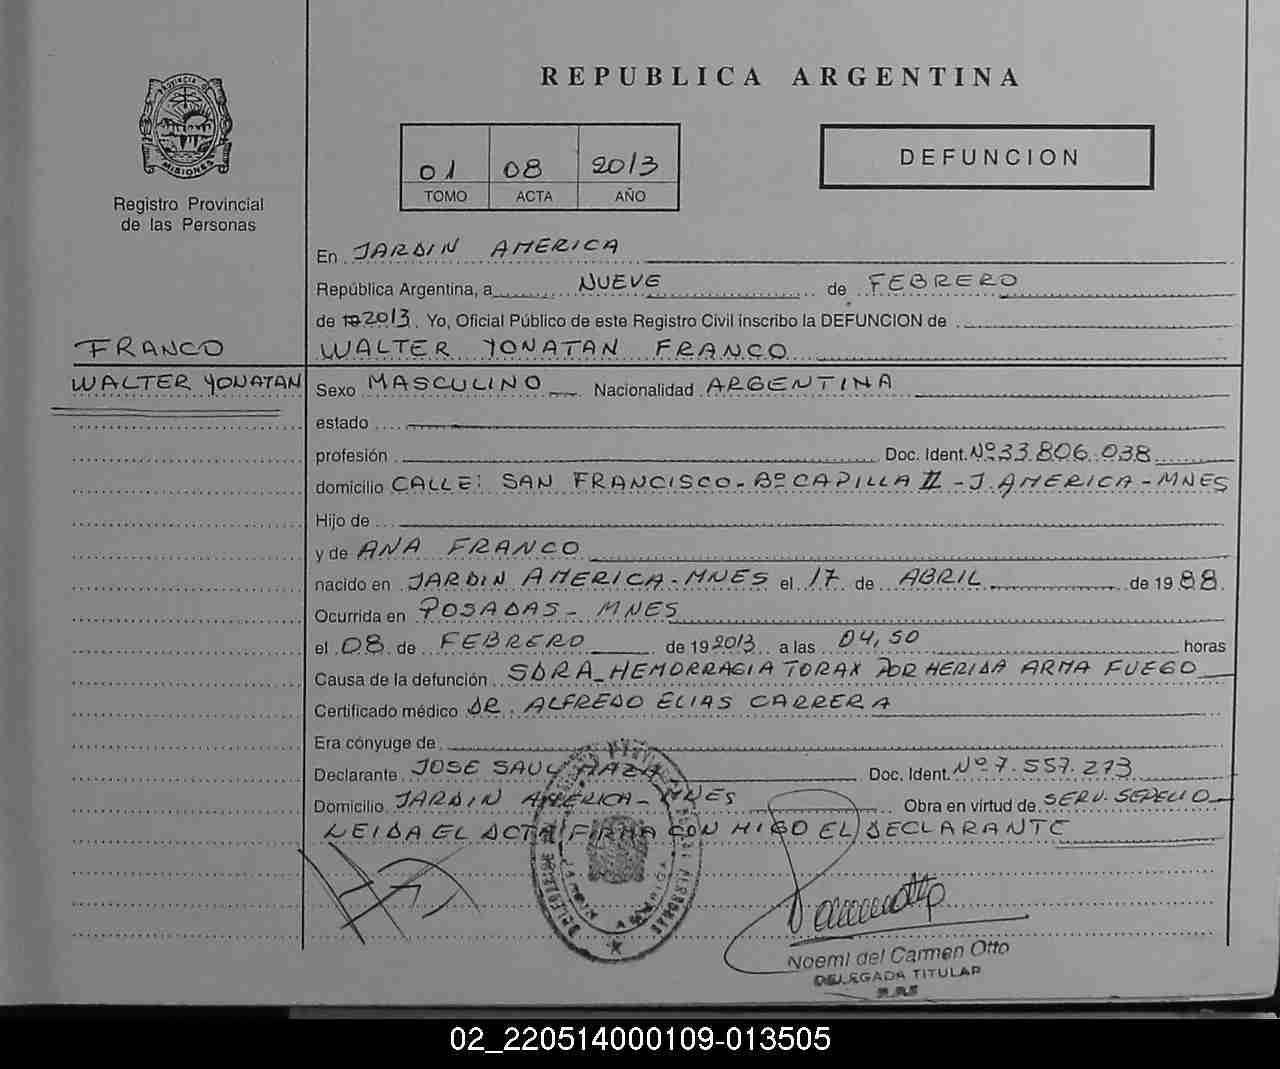 REPUBLICA ARGENTINA
PROVINCIA DE
MISIONES
Registro Provincial
de las Personas
01 08 2013
TOMO ACTA AÑO
DEFUNCION
En JARDIN AMERICA
República Argentina, a NUEVE de FEBRERO
de 19 2013. Yo, Oficial Público de este Registro Civil inscribo la DEFUNCION de
FRANCO
WALTER YONATAN FRANCO
WALTER YONATAN
Sexo MASCULINO Nacionalidad ARGENTINA
estado
profesión Doc. Ident. Nº 33.806.038
domicilio CALLE: SAN FRANCISCO - Bº CAPILLA II - J. AMERICA - MNES
Hijo de
y de ANA FRANCO
nacido en JARDIN AMERICA - MNES el 17 de ABRIL de 19 88.
Ocurrida en POSADAS - MNES
el 08 de FEBRERO de 19 2013 a las 04,50 horas
Causa de la defunción SDRA_HEMORRAGIA TORAX POR HERIDA ARMA FUEGO
Certificado médico DR. ALFREDO ELIAS CARRERA
Era cónyuge de
Declarante JOSE SAUL MAZA Doc. Ident. Nº 7.557.273
Domicilio JARDIN AMERICA - MNES Obra en virtud de SERV. SEPELIO
LEIDA EL ACTA FIRMA CON MIGO EL DECLARANTE
JARDIN AMERICA
Noemí del Carmen Otto
DELEGADA TITULAR
02_220514000109-013505